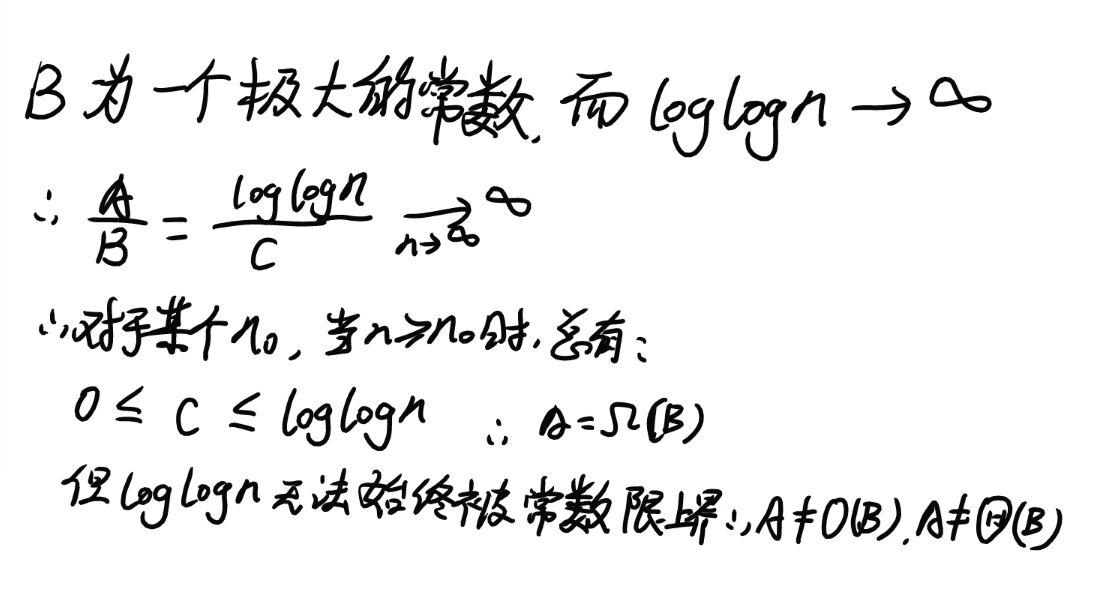 B为一个极大的常数,而loglogn→∞
∴ A/B = loglogn/C →(n→∞) ∞
∴对于某个n₀,当n≥n₀时,总有:
0 ≤ C ≤ loglogn ∴ A=Ω(B)
但loglogn无法始终被常数限上界∴A≠O(B).A≠Θ(B)